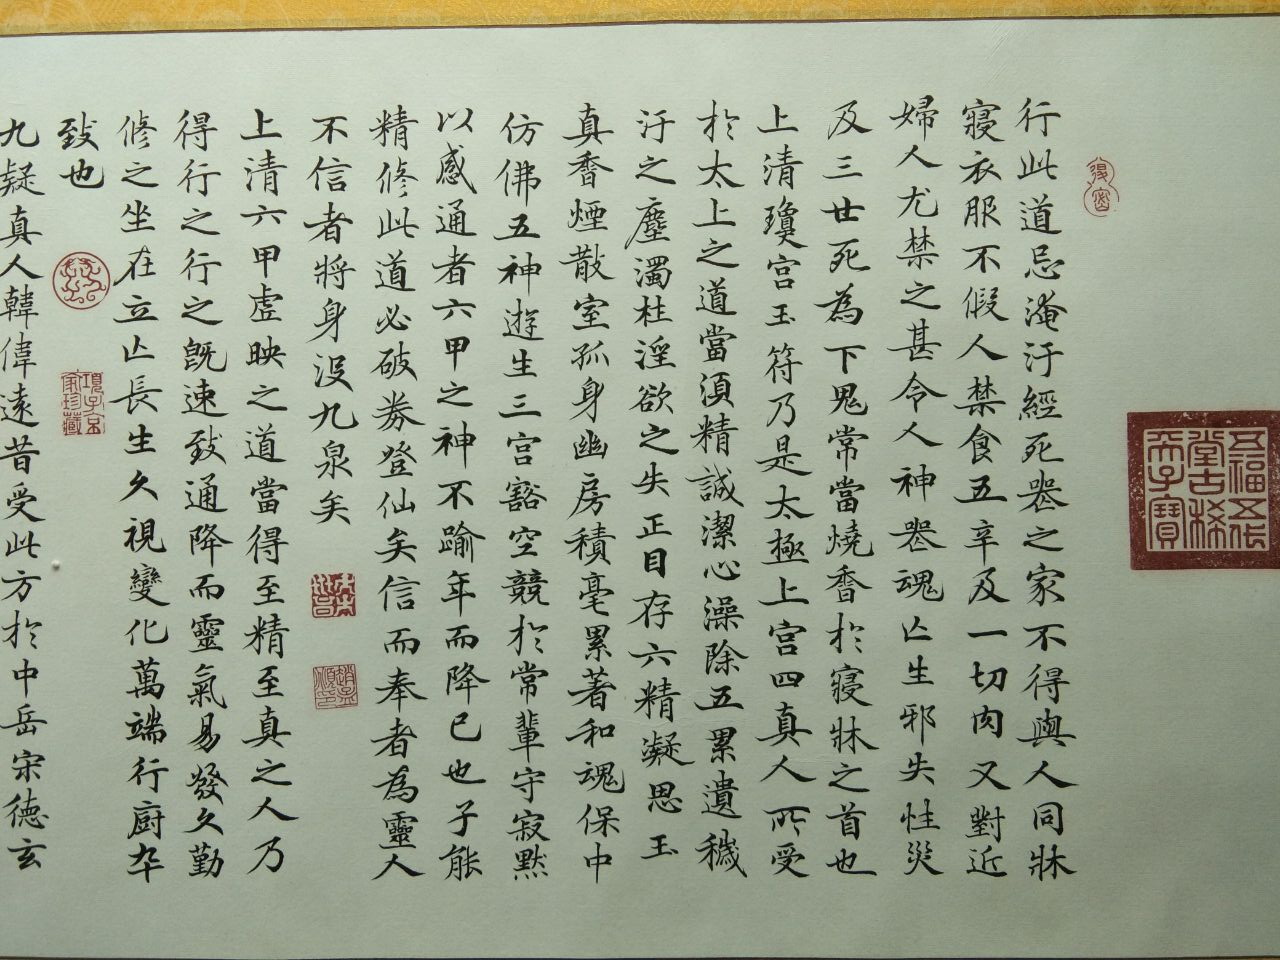 行此道忌淹汙經死喪之家不得與人同牀
寢衣服不假人禁食五辛及一切肉又對近
婦人尤禁之甚令人神喪魂亡生邪失性災
及三世死為下鬼常當燒香於寢牀之首也
上清瓊宮玉符乃是太極上宮四真人所受
於太上之道當須精誠潔心澡除五累遺穢
汙之塵濁杜淫欲之失正目存六精凝思玉
真香煙散室孤身幽房積毫累著和魂保中
仿佛五神遊生三宮豁空競於常輩守寂默
以感通者六甲之神不踰年而降已也子能
精修此道必破券登仙矣信而奉者為靈人
不信者將身沒九泉矣
上清六甲虛映之道當得至精至真之人乃
得行之行之既速致通降而靈氣易發久勤
修之坐在立亡長生久視變化萬端行廚卒
致也
九疑真人韓偉遠昔受此方於中岳宋德玄
項子京
家珍藏
五福五代
堂古稀
天子寶